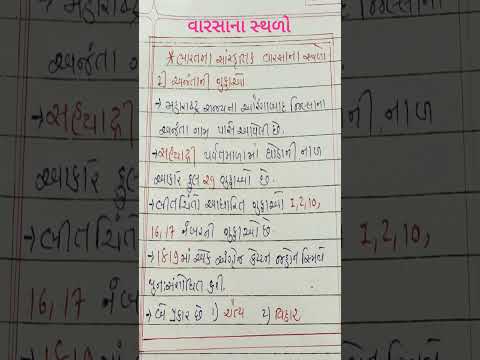 વારસાના સ્થળો
* ભારતના સાંસ્કૃતિક વારસાના સ્થળો
1) અજંતાની ગુફાઓ
→ મહારાષ્ટ્ર રાજ્યના ઔરંગાબાદ જિલ્લાના
અજંતા ગામ પાસે આવેલી છે.
→ સહ્યાદ્રી પર્વતમાળામાં ઘોડાની નાળ
આકારે કુલ ૨૧ ગુફાઓ છે.
→ ભીતચિત્રો આધારિત ગુફાઓ 1,2,10,
16,17 નંબરની ગુફાઓ છે.
→ 1819માં એક અંગ્રેજ કેપ્ટન જ્હોન સ્મિથે
પુનઃસંશોધિત કરી.
→ બે પ્રકાર છે 1) ચૈત્ય 2) વિહાર